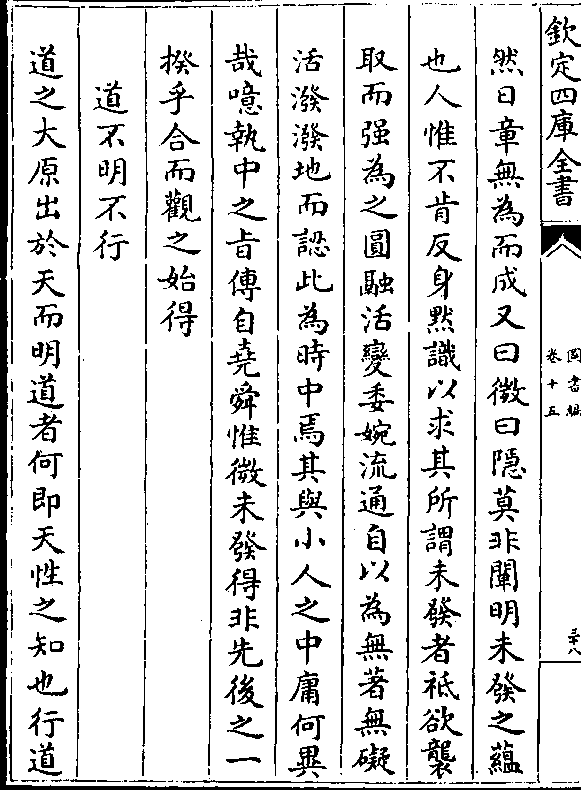 欽定四庫全書
圖書編
卷十五
三十八
然日章無為而成又曰徵曰隱莫非闡明未發之蘊
也人惟不肯反身黙識以求其所謂未發者祗欲襲
取而强為之圓融活變委婉流通自以為無著無礙
活潑潑地而認此為時中焉其與小人之中庸何異
哉噫執中之㫖傳自堯舜惟微未發得非先後之一
揆乎合而觀之始得
道不明不行
道之大原出於天而明道者何即天性之知也行道